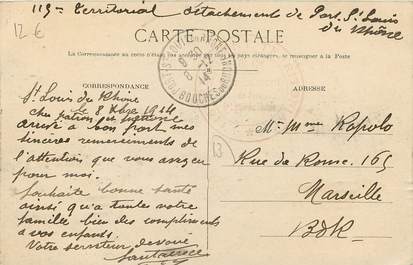 115e Territorial détachements de Port St Louis
du Rhône
12 €
CARTE POSTALE
La Correspondance au recto n'est pas acceptée par tous les pays étrangers, se renseigner à la Poste
CORRESPONDANCE
ADRESSE
St Louis du Rhône
le 8 1914
cher patron et patronne
arrivé à bon port mes
sincères remerciements de
l'attention que vous avez eu
pour moi.
Souhaite bonne santé
ainsi qu'a toute votre
famille bien des compliments
a vos enfants.
Votre serviteur dévoué
Mr Mme Rapolo
Rue de Rome. 165
Marseille
BDR
13